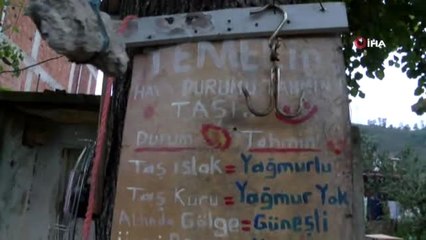 İHA
TEMEL'İN
HAVA DURUMU TAHMİN
TAŞI
Durum Tahmin
Taş ıslak = Yağmurlu
Taş Kuru = Yağmur Yok
Altında Gölge = Güneşli